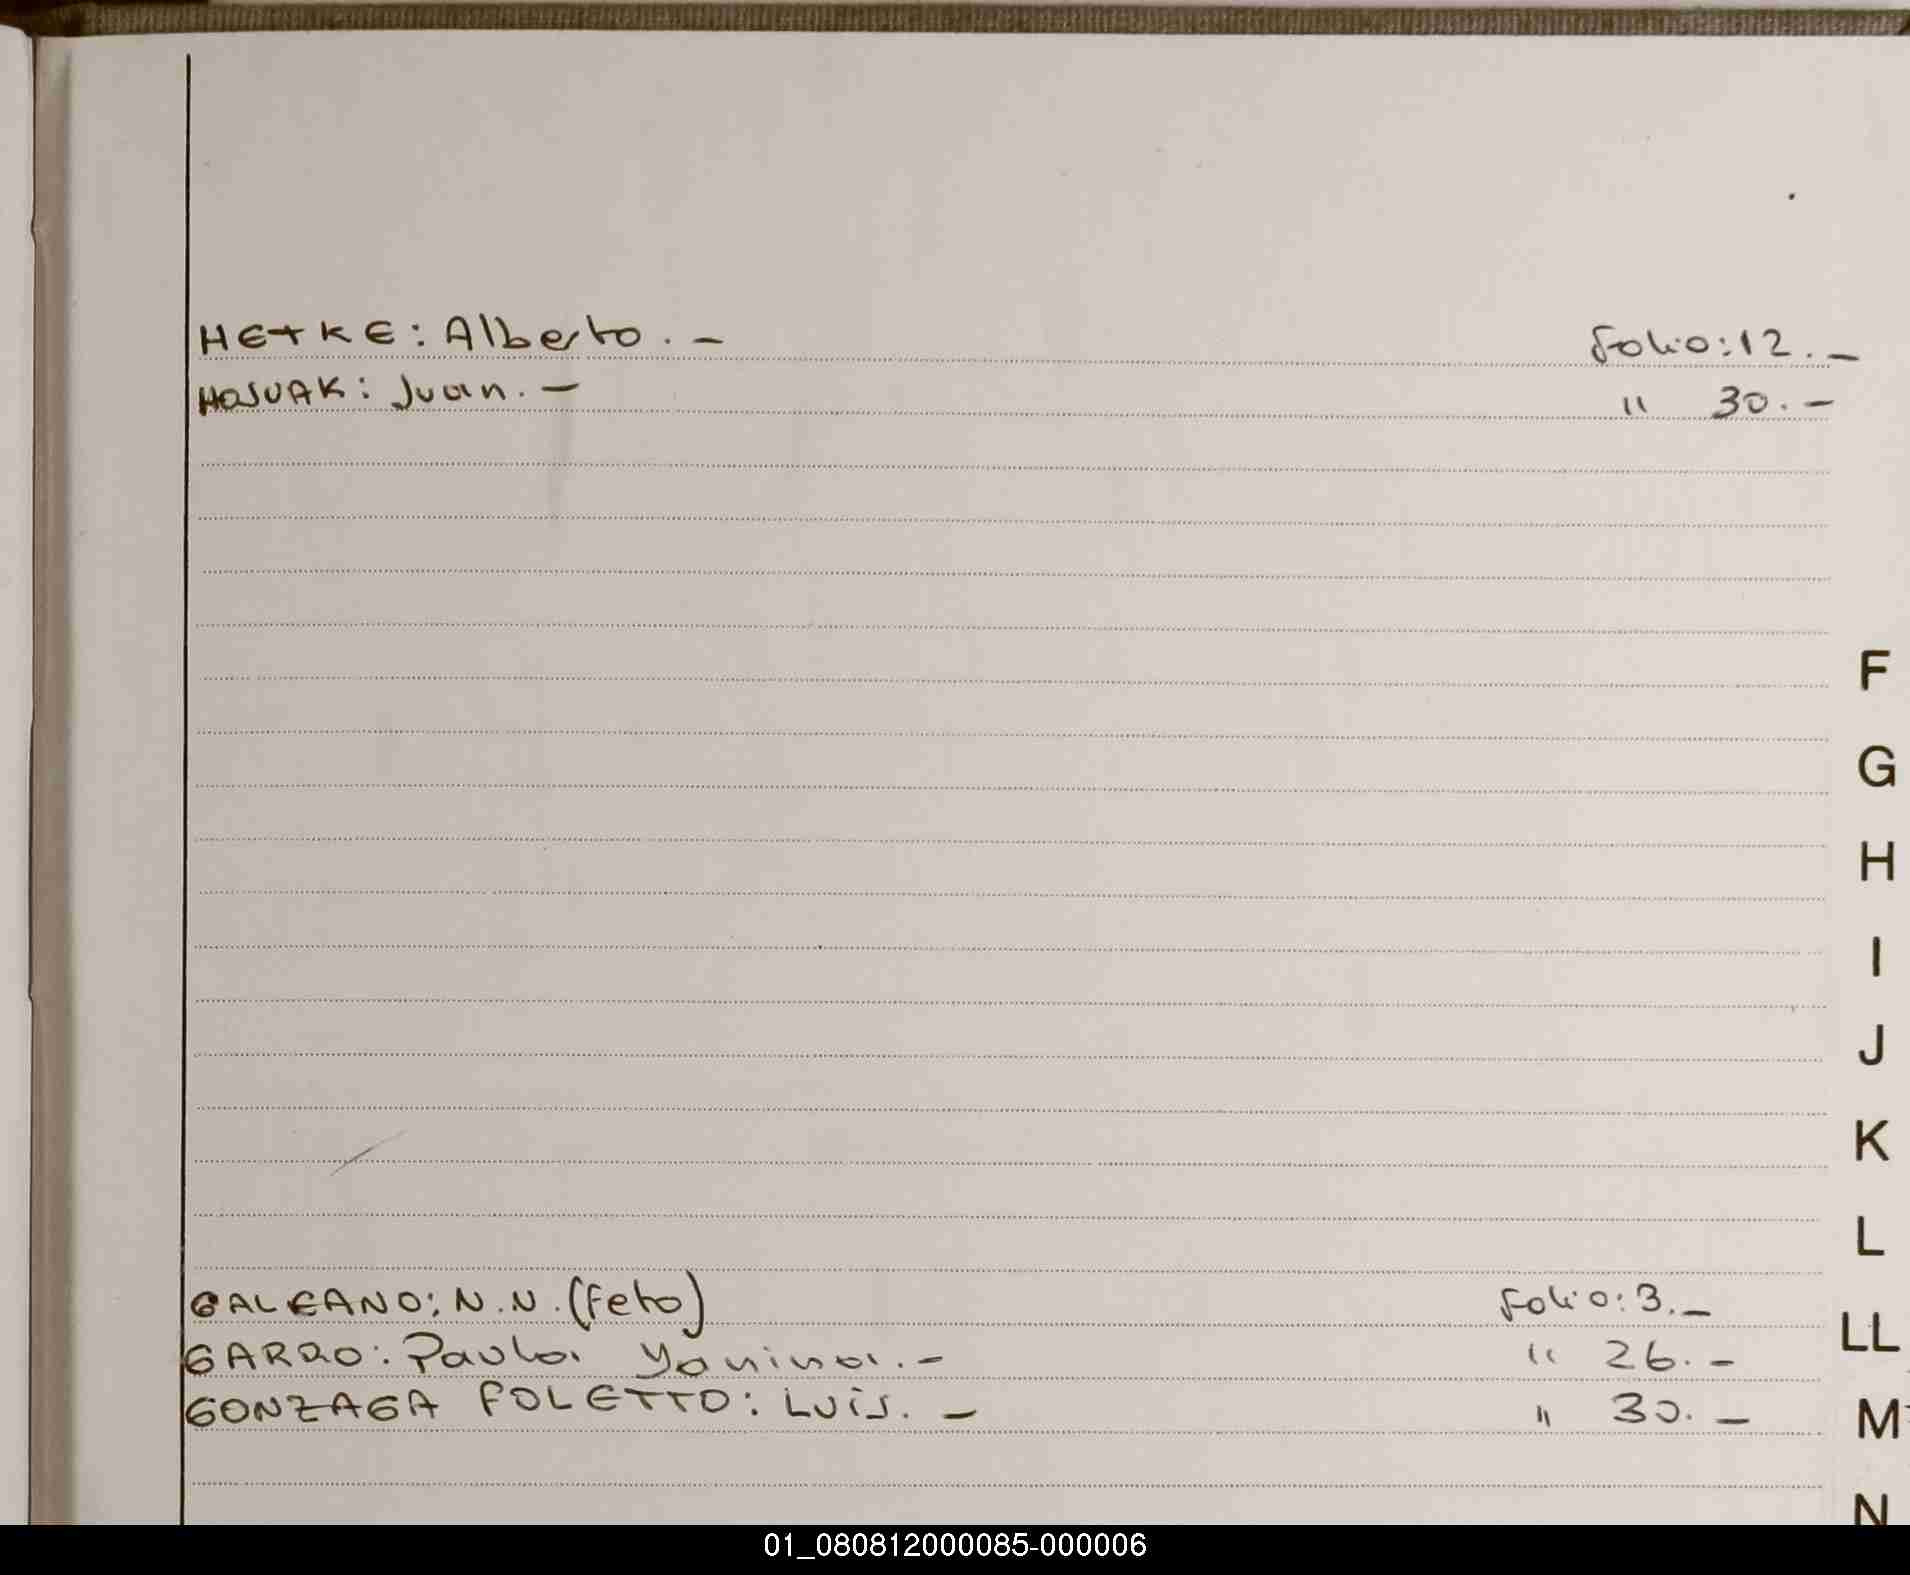 HETKE: Alberto. - Folio: 12. -
HOSUAK: Juan. - " 30. -
F
G
H
I
J
K
L
GALEANO: N.N. (Feto) Folio: 3. -
LL
GARRO: Paula Yanina. - " 26. -
GONZAGA FOLETTO: Luis. - " 30. -
M
N
01_080812000085-000006